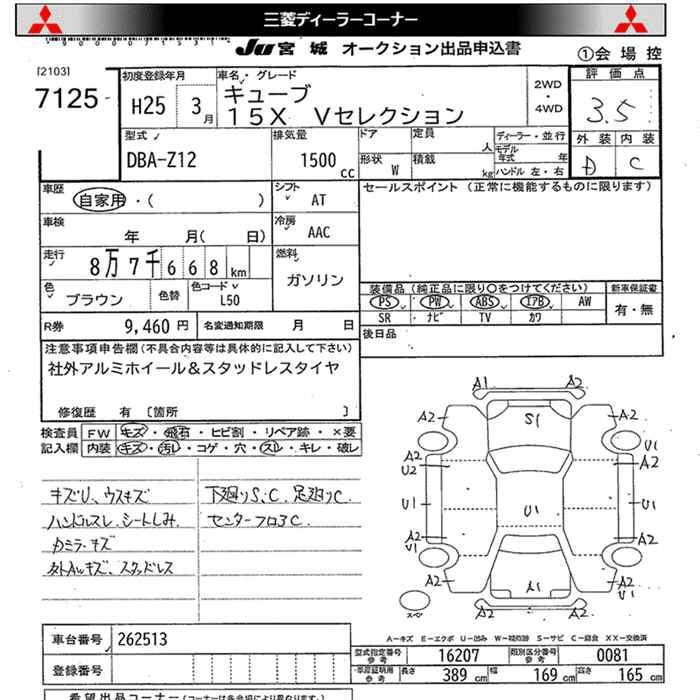 三菱ディーラーコーナー
Ju 宮城 オークション出品申込書
①会場控
[2103]
7125
初度登録年月
H25 3月
車名・グレード
キューブ
15X Vセレクション
2WD・4WD
評価点
3.5
外装 内装
D C
型式
DBA-Z12
排気量
1500cc
ドア 定員 人
形状 W 積載 kg
ディーラー・並行
モデル年式 年
ハンドル 左・右
車歴
自家用・( )
シフト
AT
車検
年 月( 日)
冷房
AAC
走行
8万7千668km
燃料
ガソリン
色
ブラウン
色替
色コード
L50
R券 9,460円 名変通知期限 月 日
セールスポイント (正常に機能するものに限ります)
装備品(純正品に限り○をつけてください)
PS PW ABS エアB AW
SR ナビ TV カワ
新車保証書
有・無
後日品
注意事項申告欄(不具合内容等は具体的に記入して下さい)
社外アルミホイール&スタッドレスタイヤ
修復歴 有 [箇所 ]
検査員記入欄
FW キズ・飛石・ヒビ割・リペア跡・×要
内装 キズ・汚レ・コゲ・穴・スレ・キレ・破レ
キズU、ウスキズ
ハンドルスレ、シートしみ、
カミラ・キズ
タイAwキズ、スタッドレス
下廻りS.C. 足廻りC.
センターフロアC.
A1 A2
A2 S1 A2
U1
A2 A2
U2
U1 U1 U1
A2 A2
U1
A2 A1 A2
U1
A2 A2
スペア
A-キズ E-エクボ U-凹み W-補修跡 S-サビ C-腐食 XX-交換済
車台番号 262513
登録番号
型式指定番号 参考 16207
類別区分番号 参考 0081
車庫証明用 参考 長さ 389 cm 幅 169 cm 高さ 165 cm
希望出品コーナー(コーナーは各会場により異なります)